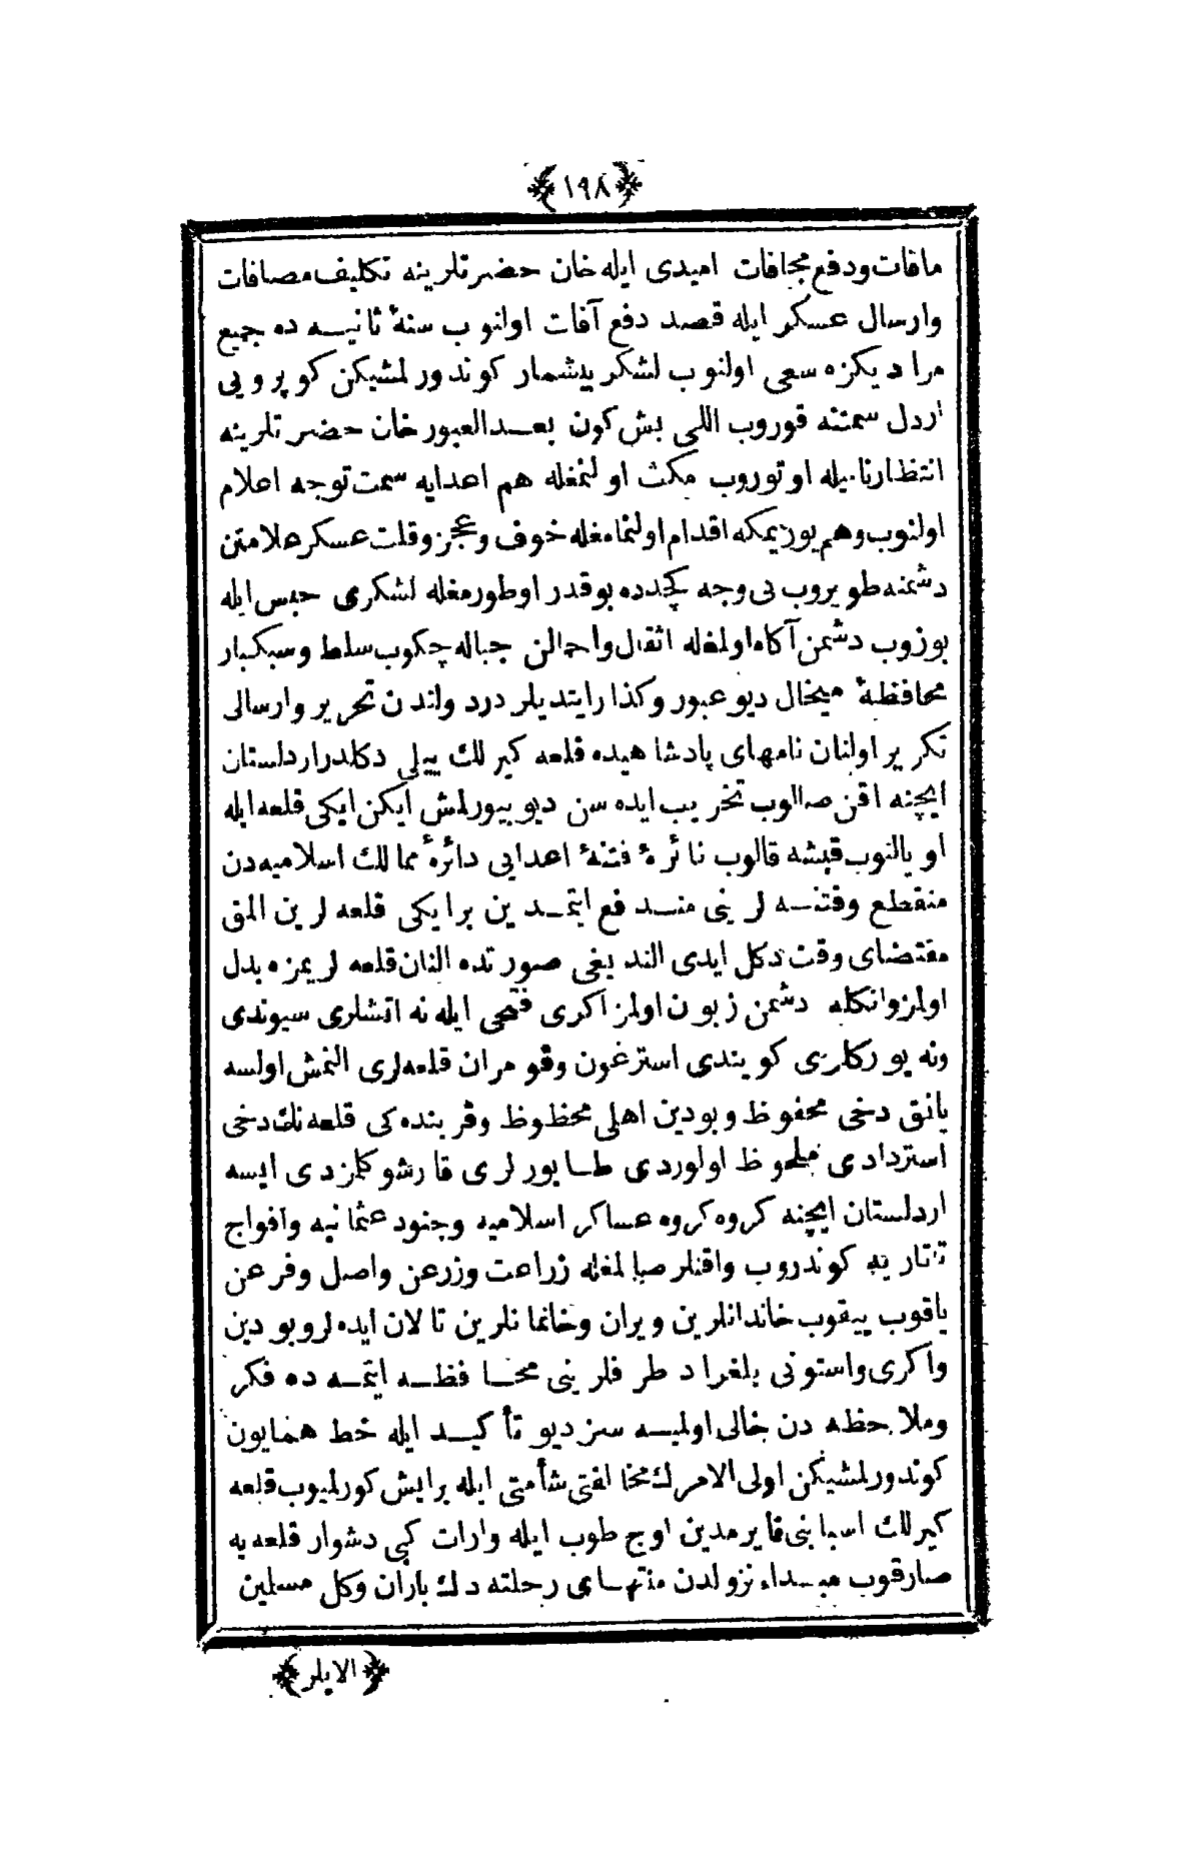 ﴿١٩٨﴾
مافات ودفع مجافات اميدى ايله خان حضرتلرينه تكليف مصافات
وارسال عسكر ايله قصد دفع آفات اولنوب سنهٔ ثانيه ده جميع
مراديكزه سعى اولنوب لشكر بيشمار كوندورلمشيكن كوپرويى
اردل سمتنه قوروب اللى بش كون بعد العبور خان حضرتلرينه
انتظار ناميله اوتوروب مكث اولنمغله هم اعدايه سمت توجه اعلام
اولنوب وهم يوريمكه اقدام اولنمامغله خوف وعجز وقلت عسكر علامتن
دشمنه طويروب بى وجه كچدده بوقدر اوطورمغله لشكرى حبس ايله
بوزوب دشمن آكاه اولمغله اثقال واحمالن جباله چكوب سلط وسبكبار
محافظهٔ ميخال ديو عبور وكذا رايتديلر درد ولندن تحرير وارسالى
تكرير اولنان نامهاى پادشاهيده قلعه كيرلك ييلى دكلدر اردلستان
ايچنه اقن صالوب تخريب ايده سن ديو بيورلمش ايكن ايكى قلعه ايله
اويالنوب قيشه قالوب نائرهٔ فتنهٔ اعدايى دائرهٔ ممالك اسلاميه دن
منقطع وفتنه لرينى مندفع ايتمدين برايكى قلعه لرين المق
مقتضاى وقت دكل ايدى الندیغى صورتده النان قلعه لريمزه بدل
اولمز وانكله دشمن زبون اولمز اكرى فتحى ايله نه اتشلرى سيوندى
ونه يوركلرى كويندى استرغون وقومران قلعه لرى النمش اولسه
يانق دخى محفوظ وبودين اهلى محظوظ وقربنده كى قلعه نك دخى
استردادى ملحوظ اولوردى طابورلرى قارشو كلمزدى ايسه
اردلستان ايچنه كروه كروه عساكر اسلاميه وجنود عثمانيه وافواج
تاتاريه كوندروب واقنلر صالمغله زراعت وزرعن واصل وفرعن
ياقوب ييقوب خاندانلرين ويران وخانمانلرين تالان ايده لر وبودين
واكرى واستونى بلغراد طرفلرينى محافظه ايتمه ده فكر
وملاحظه دن خالى اولميه سز ديو تأكيد ايله خط همايون
كوندورلمشيكن اولى الامرك مخالفتى شأمتى ايله برايش كورلميوب قلعه
كيرلك اسبابنى قايرمدين اوج طوب ايله وارات كبى دشوار قلعه يه
صارقوب مبداء نزولدن منتهاى رحلته دك باران وكل مسلمين
﴿الايلر﴾